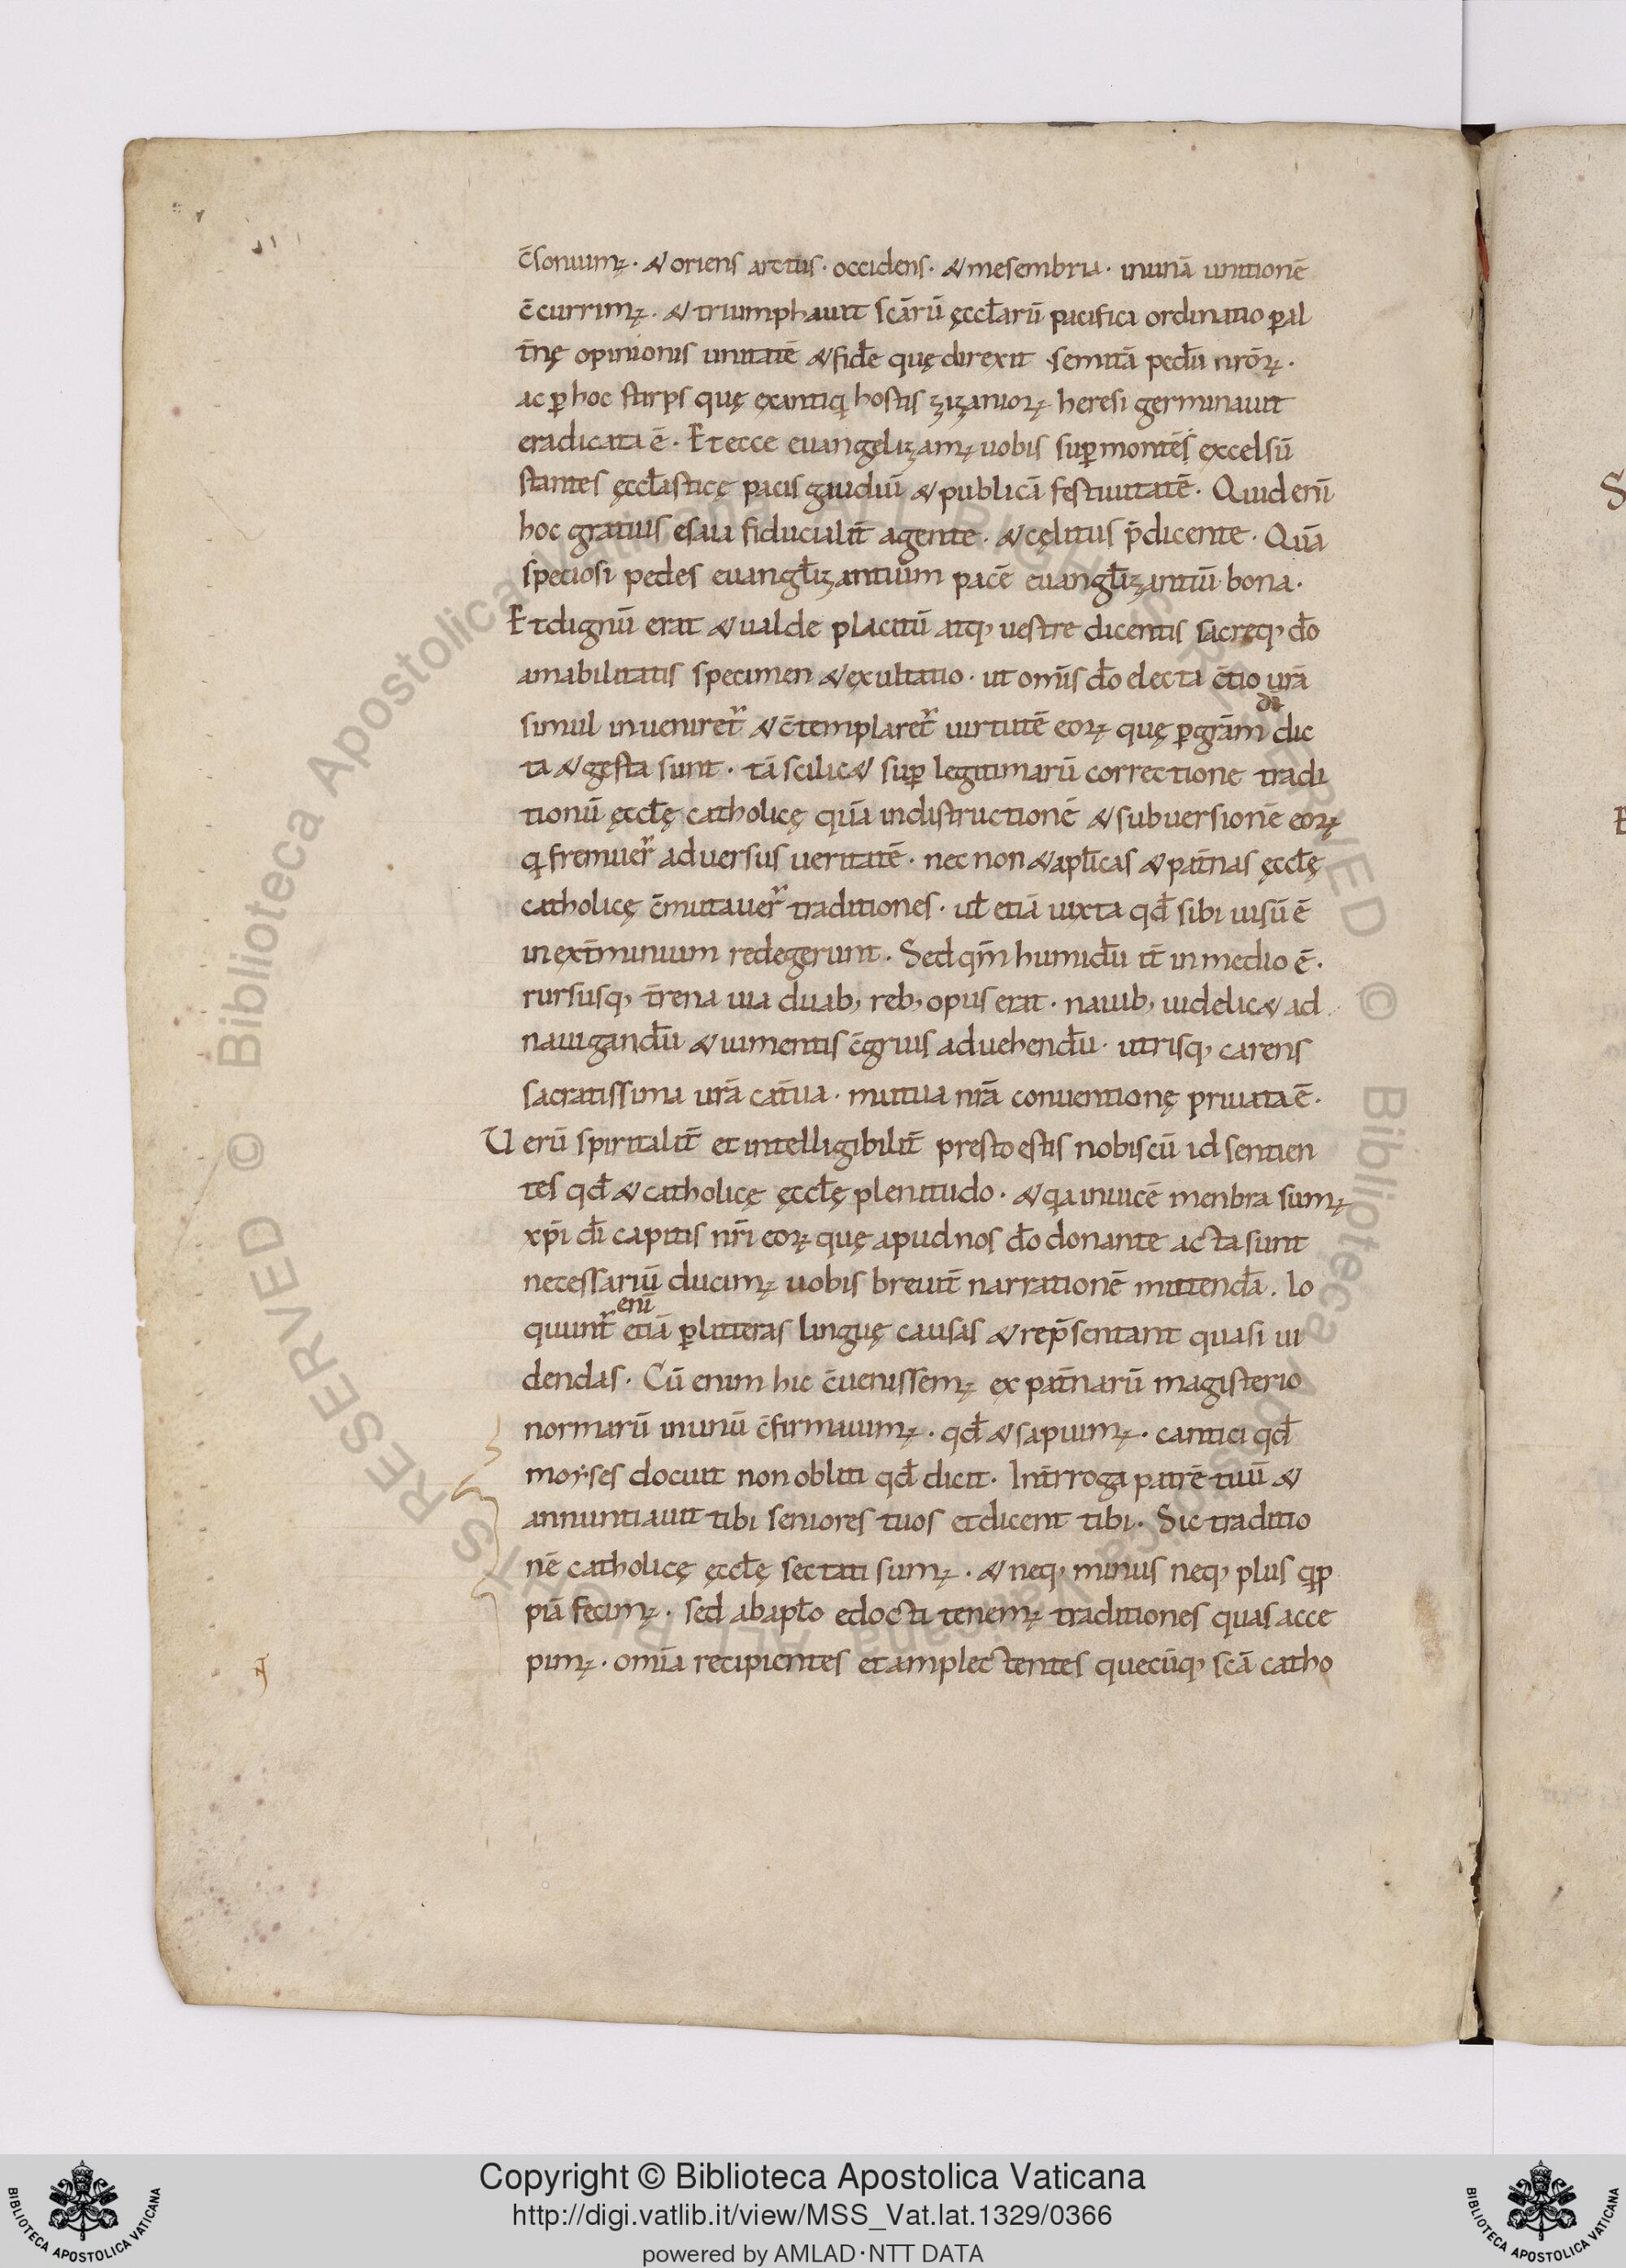 c̄sonuimꝰ · & oriens arctus · occidens · & mesembria · inunā unitionē
c̄currimꝰ · & triumphauit sc̄arū ęccl̄arū pacifica ordinatio ꝑal
t̄nę opinionis unitatē & fid̄e quę direxit semitā pedū nr̄oꝝ ·
ac ꝑ hoc stirps quę exantiq hostis zizanioꝝ heresi germinauit
eradicata ē · Et ecce euangelizamꝰ uobis suꝑ montēs excelsū
stantes ęccl̄asticę pacis gaudiū & publicā festiuitatē · Quid eni̅
hoc gratius esaia fiducialit̄ agente · & cęlitus p̄dicente · Quā
speciosi pedes euangl̄izantium pacē euangl̄izantiū bona ·
Et dignū erat & ualde placitū atqꝫ uestre dicentis sacreqꝫ d̄o
amabilitatis specimen & exultatio · ut om̄is d̄o electa c̄tio ur̄a
simul inueniret᷑ & c̄templaret᷑ uirtutē eoꝝ quę ꝑgr̄am d̄i dic
ta & gesta sunt · tā scilic& suꝑ legitimarū correctione tradi
tionū ęccl̄ę catholicę quā indistructionē & subuersionē eoꝝ
q fremuer̄ aduersus ueritatē · nec non & apl̄icas & pat̄nas ęccl̄ę
catholicę c̄mutauer̄ traditiones · ul̄ etiā iuxta qd̄ sibi uisū ē
in ext̄minium redegerunt · Sed qm̄ humidū it̄ in medio ē ·
rursusqꝫ t̄rena uia duabꝫ rebꝫ opus erat · nauibꝫ uidelic& ad
nauigandū & iumentis c̄gruis aduehendū · utrisqꝫ carens
sacratissima ur̄a cat̄ua · mutua nr̄a conuentionę priuata ē ·
Uerū spiritalit̄ et intelligibilit̄ presto estis nobiscū id sentien
tes qd̄ & catholicę ęccl̄ę plenitudo · & qa inuicē menbra sumꝰ
xp̄i d̄i capitis nr̄i eoꝝ quę apud nos d̄o donante acta sunt
necessariū ducimꝰ uobis breuit̄ narrationē mittendā · lo
quunt᷑ eni̅ etiā ꝑ litteras linguę causas & rep̄sentant quasi ui
dendas · Cū enim hic c̄uenissemꝰ ex pat̄narū magisterio
normarū inunū c̄firmauimꝰ · qd̄ & sapuimꝰ · cantici qd̄
moẏses docuit non obliti qd̄ dicit · Int̄rroga patrē tuū &
annuntiauit tibi seniores tuos et dicent tibi · Sic traditio
nē catholicę ęccl̄ę sectati sumꝰ · & neqꝫ minus neqꝫ plus qꝑp
piā fecimꝰ · sed abapl̄o edocti tenemꝰ traditiones quas acce
pimꝰ · om̄ia recipientes et amplectentes quecūqꝫ sc̄a catho
Copyright © Biblioteca Apostolica Vaticana
http://digi.vatlib.it/view/MSS_Vat.lat.1329/0366
powered by AMLAD·NTT DATA